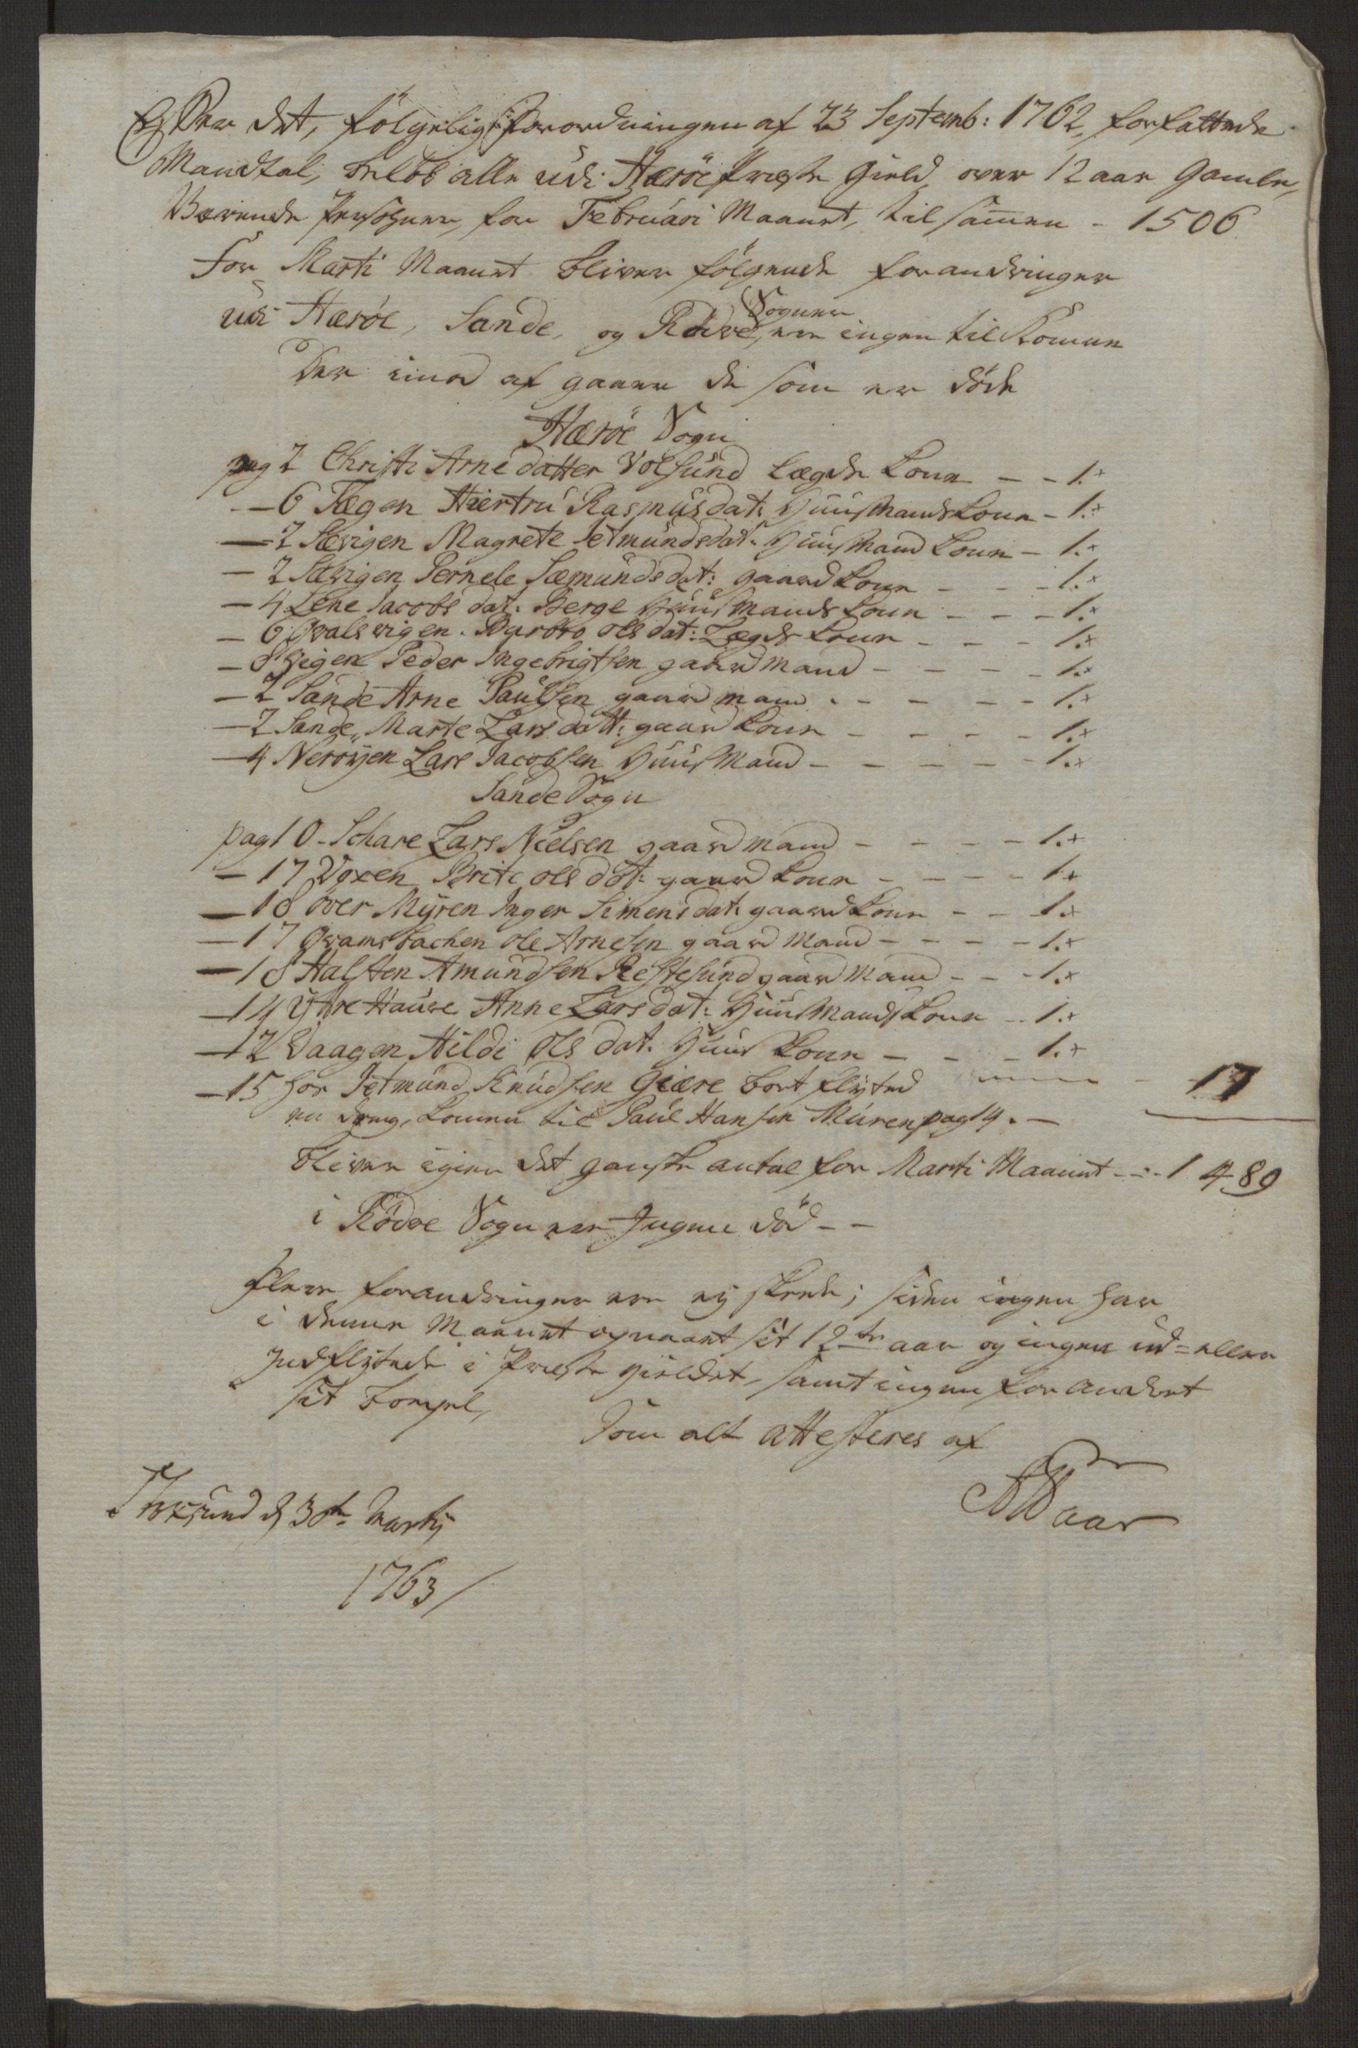 Efter det, følgelig Forordningen af 23 Septemb: 1762, forfattede
Mandtal, beløb alle udi Herøe Præste Gield, over 12 aar Gamle,
Værende Persohner, for Februari Maanet, til samen - 1506
For Marti Maanet bliver følgende forandringer
Udi Herøe, Sande, og Rødve Sogner, er ingen til Komne
Der imod af gaaer de som er døde
Herøe Sogn
pag 2 Christi Arnedatter Volsund Lægde Kone - - 1.
- 6 Tægen Hiertru Rasmusdat: Huusmands Kone - 1.
- 2 Sævigen Magrete Jetmundsdat: Huusmand Kone - 1.
- 2 Sævigen Pernele Sæmundsdat: gaard Kone - - - 1.
- 4 Lene Jacobs dat: Berge Huusmands Kone - - - 1.
- 6 Qvalsvigen Barbro Ols dat: Lægds Kone - - - 1.
- 8 Vigen Peder Ingebrigtsen gaardmand - - - - 1.
- 2 Sande Arne Paulsen gaardmand - - - - - 1.
- 2 Sande, Marte Larsdatt: gaard Kone - - - - 1.
- 4 Nerøyen Lars Jacobsen Huusmand - - - - - 1.
Sande Sogn
pag 10 - Schare Lars Nielsen gaardmand - - - - 1.
- 17 Voxen Brite Ols dat: gaard Kone - - - - 1.
- 18 Over Myren Inger Simensdat: gaard Kone - - 1.
- 17 Qvamsbachen Ole Arnesen gaard Mand - - - - 1.
- 18 Halsten Amundsen Reftesund gaard Mand - - - 1.
- 14 Ytre Hauge Anne Larsdat: Huusmands Kone - 1.
- 12 Vaagen Hildi Ols dat: Huus Kone - - - - 1.
- 15 hos Jetmund Knudsen Giære bort flyted - 17
en dreng, komen til Paul Hansen Muren pag 14. -
bliver igien det ganske antal for Marti Maanet - - - 1489
i Rødve Sogn er Ingen død - -
Flere forandringer er ej skede; siden ingen har
i denne Maanet opnaaet sit 12te aar og ingen ud- eller
Indflytede i Præste gieldet, samt ingen forandret
sit bopæl,
Som alt attesteres af
Torsund d 30te Martij
1763/